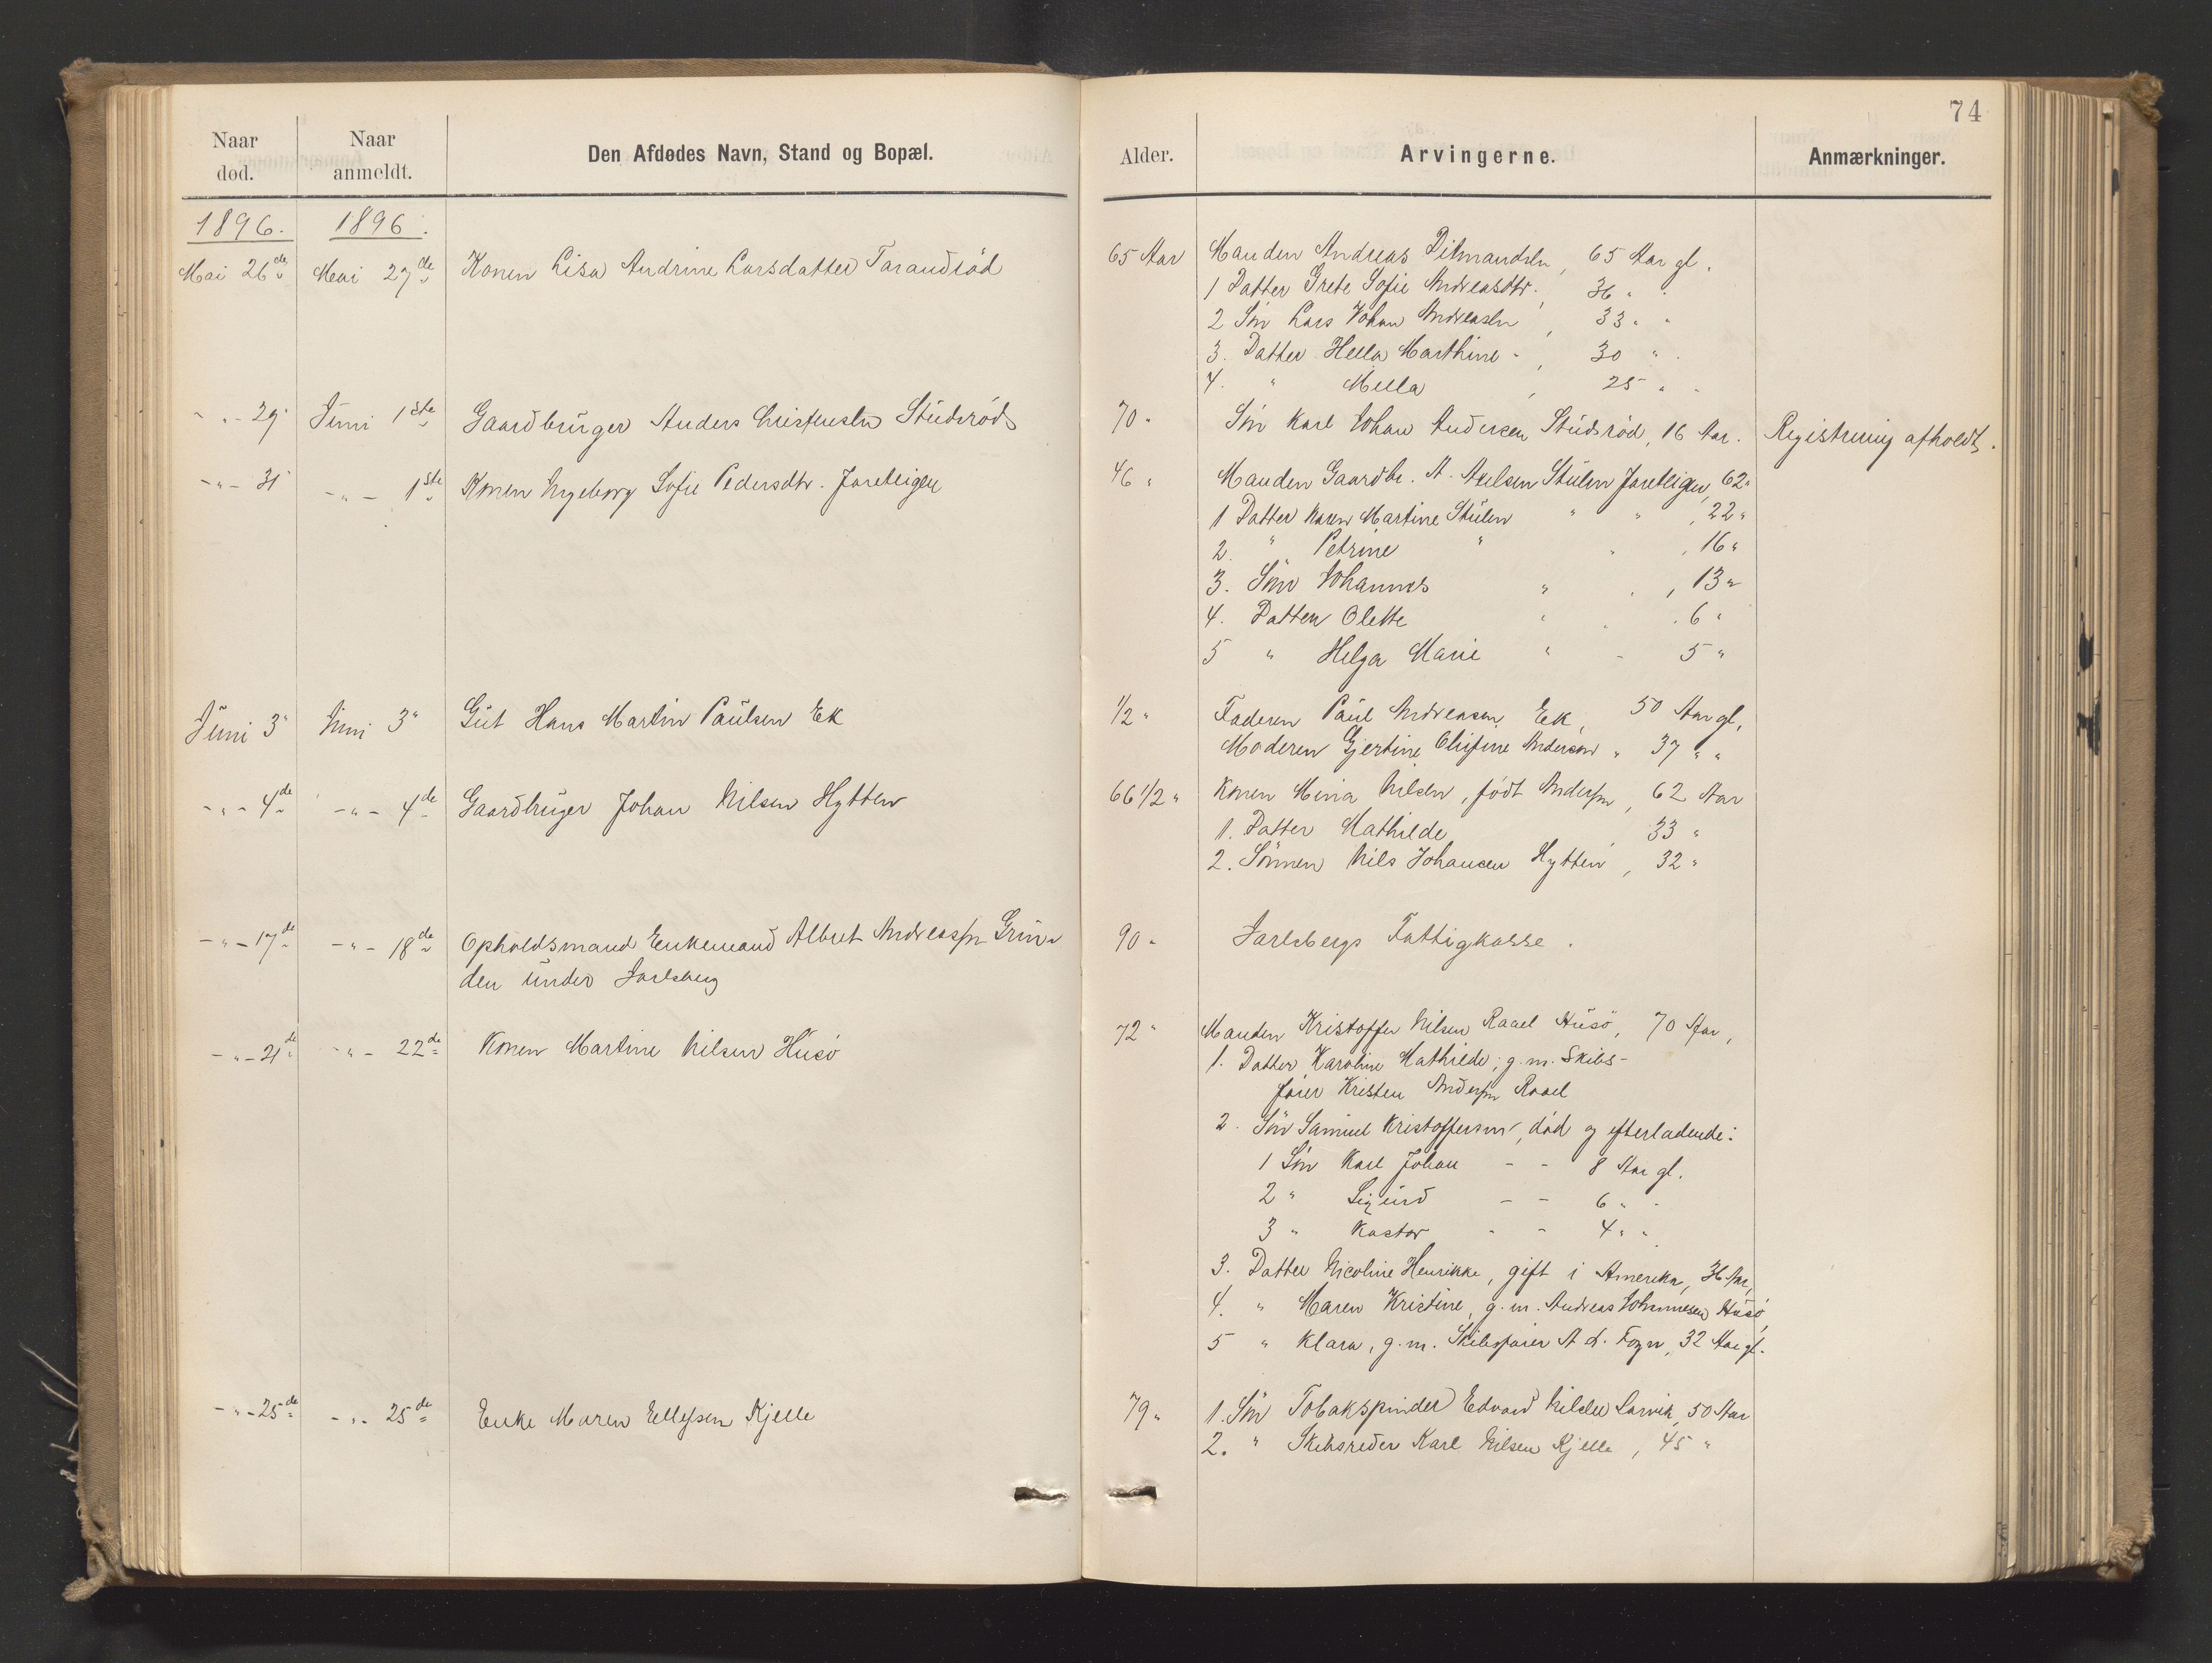 74
Naar død.
Naar anmeldt.
Den Afdødes Navn, Stand og Bopæl.
Alder.
Arvingerne.
Anmærkninger.
1896. 1896.
Mai 26de Mai 27de Konen Lisa Andrine Larsdatter Tarandrød 65 Aar Manden Andreas Ditmandsen, 65 Aar gl.
1 Datter Grete Sofie Andreasdtr., 36 " "
2 Søn Lars Johan Andreasen, 33 " "
3. Datter Hella Marthine ", 30 " "
4. " Mella, 25 " "
" - 29 Juni 1ste Gaardbruger Anders Christensen Studsrød 70 " Søn Karl Johan Andersen Studsrød, 16 Aar. Registrering afholdt.
- " - 31 - " - 1ste Konen Ingeborg Sofie Pedersdtr. Jareteigen 46 " Manden Gaardbr. A. Axelsen Stulen Jareteigen, 62 "
1 Datter Karen Martine Stulen " ", 22 "
2. " Petrine " ", 16 "
3. Søn Johannes " ", 13 "
4. Datter Olette " " 6 "
5 " Helga Marie " - 5 "
Juni 3 " Juni 3 " Gut Hans Martin Paulsen Ek 1/2 " Faderen Paul Andreasen Ek, 50 Aar gl.
Moderen Gjertine Andersen " 37 " "
- " - 4de - " - 4de Gaardbruger Johan Nilsen Hytten 66 1/2 " Konen Mina Nilsen, født Anderssen, 62 Aar
1. Datter Mathilde, 33 "
2. Sønnen Nils Johansen Hytten, 32 "
- " - 17de - " - 18de Opholdsmand Enkemand Albret Andreassen Grin-
den under Jarlsberg 90 " Jarlsbergs Fattigkasse.
- " - 21de - " - 22de Konen Martine Nilsen Husø 72 " Manden Kristoffer Nilsen Rael Husø, 70 Aar,
1. Datter Karoline Mathilde, g. m. Skibs-
fører Kristen Anderssen Rael
2. Søn Samuel Kristoffersen, død og efterladende:
1 Søn Karl Johan - - 8 Aar gl.
2 " Sigurd - - 6 " "
3 " Kastor - - 4 " "
3. Datter Nicoline Henrikke, gift i Amerika, 36 Aar,
4. " Maren Kristine, g. m. Andreas Johannesen Husø,
5 " Klara, g. m. Skibsfører A. L. Fogn, 32 Aar gl.
- " - 25de - " - 25de Enke Maren Ellefsen Kjelle 79 " 1. Søn Tobakspinder Edvard Nilsen Larvik, 50 Aar
2. " Skibsreder Karl Nilsen Kjelle, 45 "